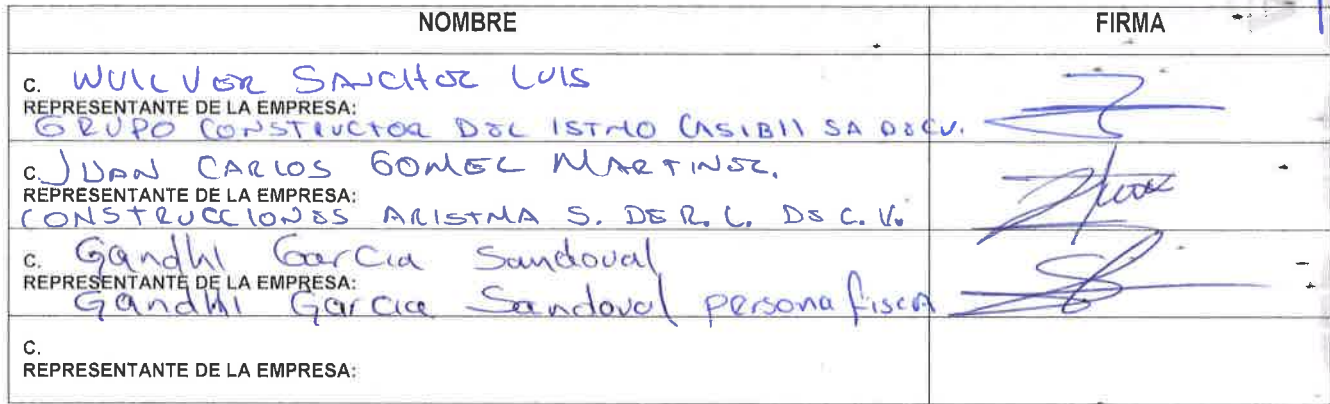 NOMBRE FIRMA
C. WULVER SANCHEZ LUIS
REPRESENTANTE DE LA EMPRESA:
GRUPO CONSTRUCTOR DEL ISTMO CASIBII SA DE CV.
C. JUAN CARLOS GOMEZ MARTINEZ.
REPRESENTANTE DE LA EMPRESA:
CONSTRUCCIONES ARISTMA S. DE R. L. DE C. V.
C. Gandhi Garcia Sandoval
REPRESENTANTE DE LA EMPRESA:
Gandhi Garcia Sandoval persona fisca
C.
REPRESENTANTE DE LA EMPRESA: